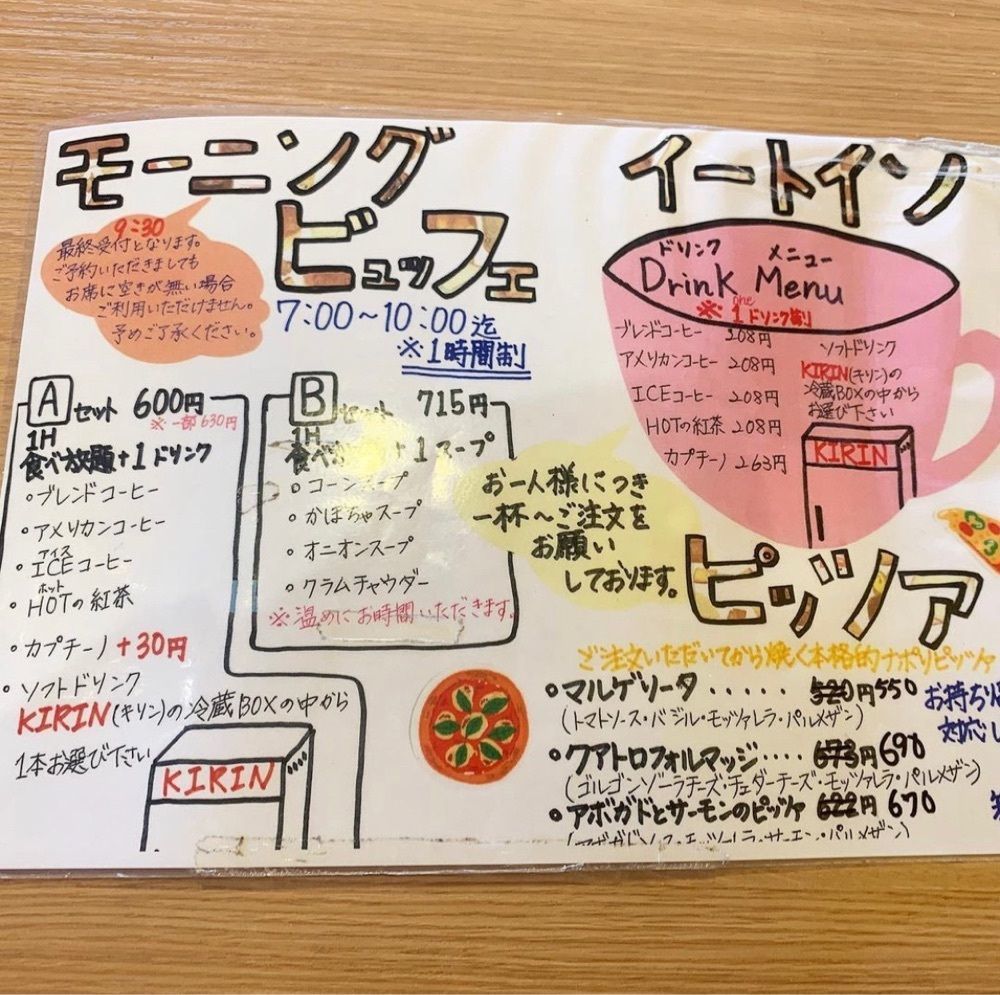 モーニング
ビュッフェ
9:30
最終受付となります。
ご予約いただきましても
お席に空きが無い場合
ご利用いただけません。
予めご了承ください。
7:00~10:00迄
※1時間制
Aセット 600円
※一部630円
1H
食べ放題+1ドリンク
・ブレンドコーヒー
・アメリカンコーヒー
アイス
・ICEコーヒー
ホット
・HOTの紅茶
・カプチーノ +30円
・ソフトドリンク
KIRIN(キリン)の冷蔵BOXの中から
1本お選び下さい
KIRIN
Bセット 715円
1H
食べ放題+1スープ
・コーンスープ
・かぼちゃスープ
・オニオンスープ
・クラムチャウダー
※温めにお時間いただきます。
イートイン
ドリンク メニュー
Drink Menu
one
※1ドリンク制
ブレンドコーヒー 208円
アメリカンコーヒー 208円
ICEコーヒー 208円
HOTの紅茶 208円
カプチーノ 263円
ソフトドリンク
KIRIN(キリン)の
冷蔵BOXの中から
お選び下さい
KIRIN
お一人様につき
一杯~ご注文を
お願い
しております。
ピッツァ
ご注文いただいてから焼く本格的ナポリピッツァ
・マルゲリータ ····· 520円 550
(トマトソース・バジル・モッツァレラ・パルメザン)
・クアトロフォルマッジ···· 673円 690
(ゴルゴンゾーラチーズ・チェダーチーズ・モッツァレラ・パルメザン)
・アボガドとサーモンのピッツァ 622円 670
お持ち
対応